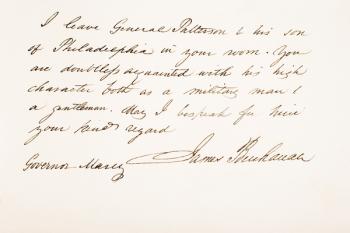 I leave General Patterson & his son
of Philadelphia in your room. You
are doubtless acquainted with his high
character both as a military man &
a gentleman. May I bespeak for him
your kind regard
James Buchanan
Governor Marcy